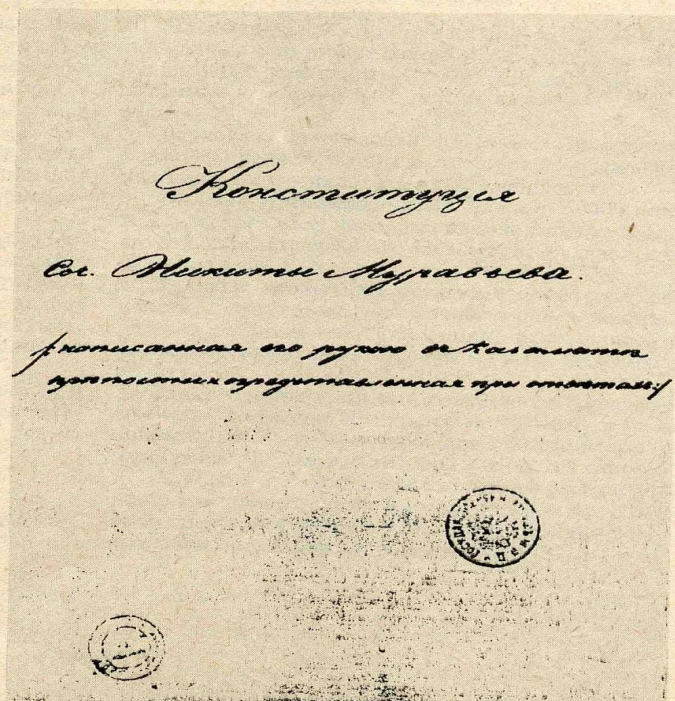 Конституція
Соч. Никиты Муравьева.
/: написанная его рукою въ Казематѣ
крѣпости и представленная при отвѣтахъ:/